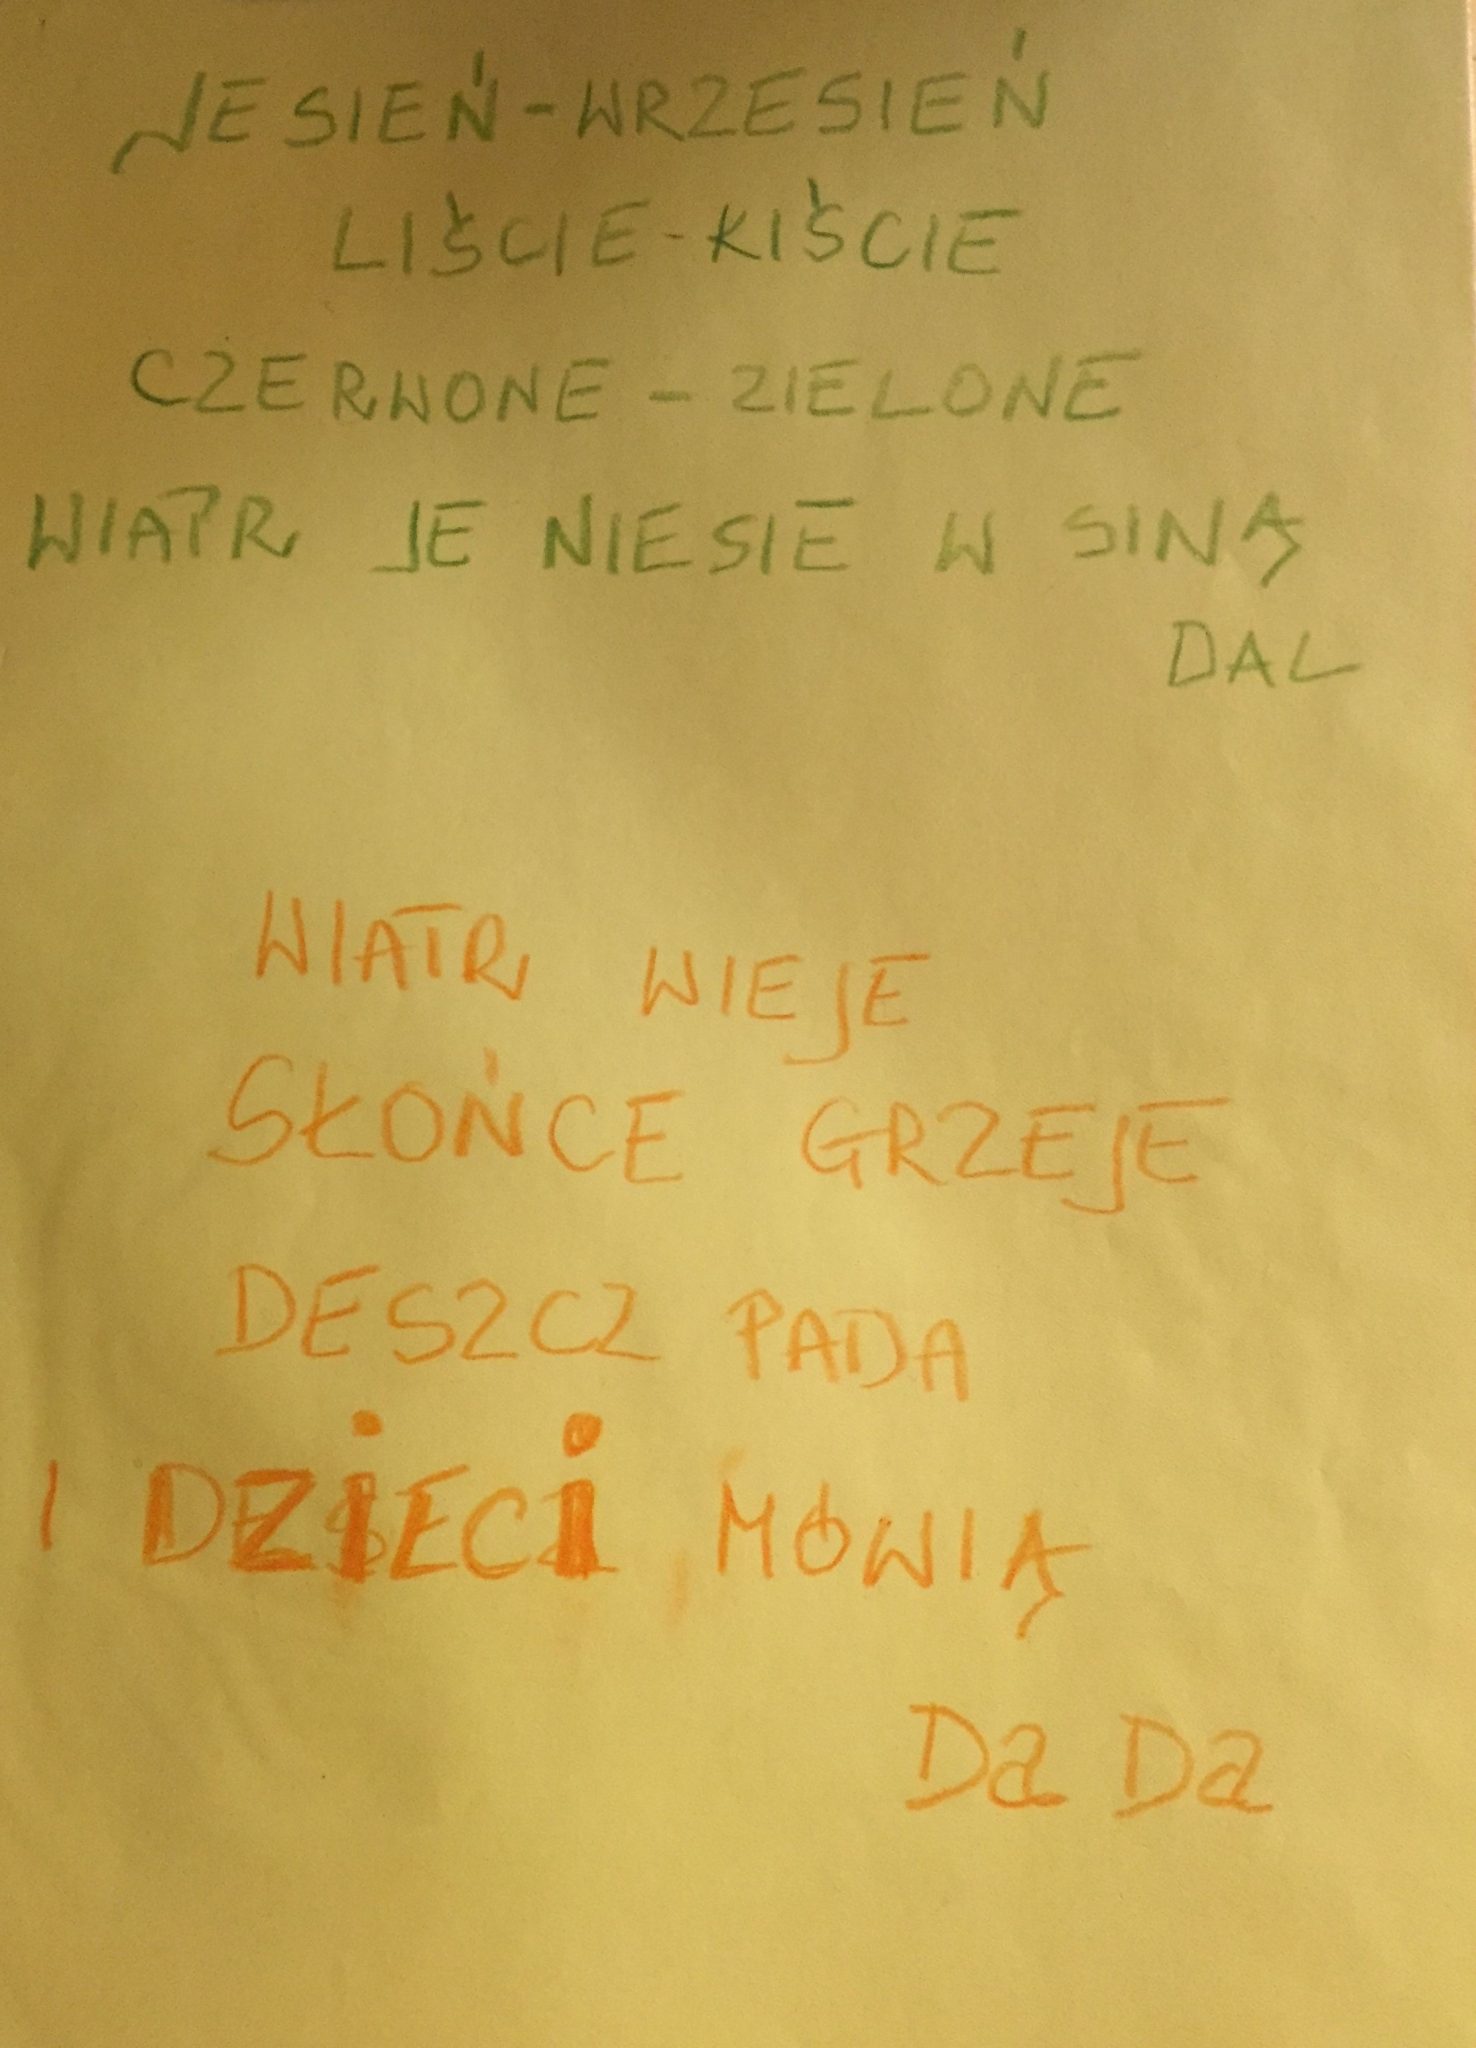 JESIEŃ-WRZESIEŃ
LIŚCIE-KIŚCIE
CZERWONE - ZIELONE
WIATR JE NIESIE W SINĄ
DAL
WIATR WIEJE
SŁOŃCE GRZEJE
DESZCZ PADA
I DZiECi MÓWIĄ
Da Da